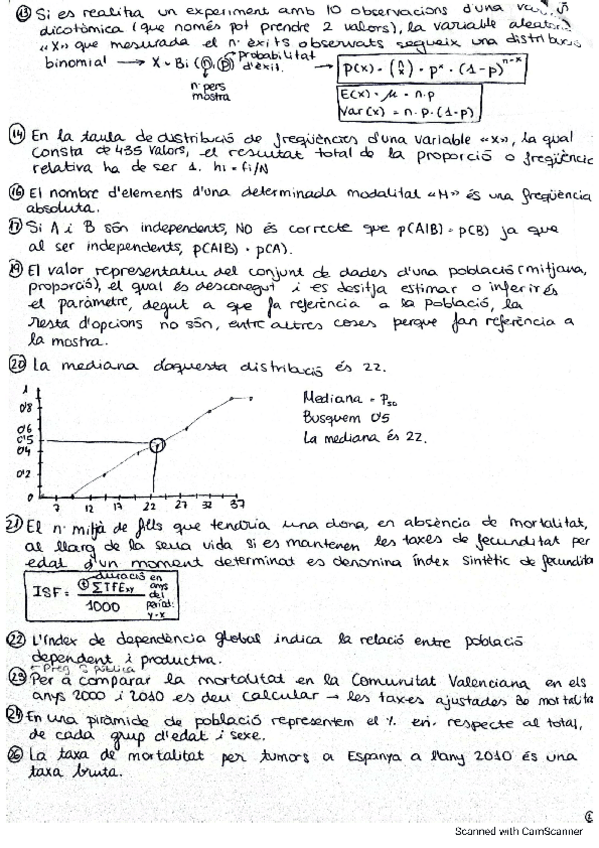 (13) Si es realitza un experiment amb 10 observacions d'una
dicotòmica (que només pot prendre 2 valors), la variable
«X» que mesurada el nº èxits observats segueix una
binomial → X ~ Bi (n, p) Probabilitat d'èxit.
nº pers mostra
P(x) = (n x) · pˣ · (1-p)ⁿ⁻ˣ
E(x) = μ = n·p
Var(x) = n·p·(1-p)
(14) En la taula de distribució de freqüències d'una variable «x», la qual
consta de 435 valors, el resultat total de la proporció o freqüència
relativa ha de ser 1. hi = fi/N
(16) El nombre d'elements d'una determinada modalitat «M» és una freqüència
absoluta.
(17) Si A i B són independents, NO és correcte que p(A|B) = p(B) ja que
al ser independents, p(A|B) = p(A).
(19) El valor representatiu del conjunt de dades d'una població (mitjana,
proporció), el qual és desconegut i es desitja estimar o inferir és
el paràmetre, degut a que fa referència a la població, la
resta d'opcions no són, entre altres coses perque fan referència a
la mostra.
(20) La mediana d'aquesta distribució és 22.
Mediana = P₅₀
Busquem 0'5
La mediana és 22.
1
0'8
0'6
0'5
0'4
0'2
0
7 12 17 22 27 32 37
(21) El nº mitjà de fills que tendria una dona, en absència de mortalitat,
al llarg de la seua vida si es mantenen les taxes de fecunditat per
edat d'un moment determinat es denomina índex sintètic de
ISF = ΣTFExy / 1000
duració en anys del període: y-x
(22) L'índex de dependència global indica la relació entre població
dependent i productiva.
(23) Per a comparar la mortalitat en la Comunitat Valenciana en els
anys 2000 i 2010 es deu calcular → les taxes ajustades de
(24) En una piràmide de població representem el % en respecte al total,
de cada grup d'edat i sexe.
(26) La taxa de mortalitat per tumors a Espanya a l'any 2010 és una
taxa bruta.
Scanned with CamScanner